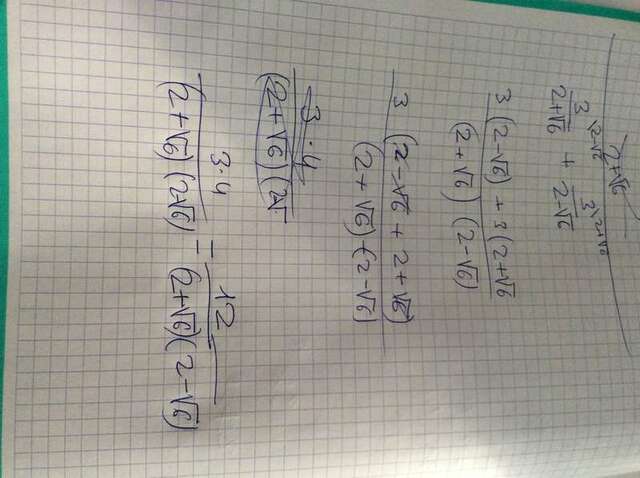 2+√6
3\2-√6 / 2+√6 + 3\2+√6 / 2-√6
3(2-√6) + 3(2+√6 / (2+√6)(2-√6)
3 (2-√6 + 2+√6) / (2+√6)-(2-√6)
3·4 / (2+√6)(2√
3·4 / (2+√6)(2-√6) = 12 / (2+√6)(2-√6)